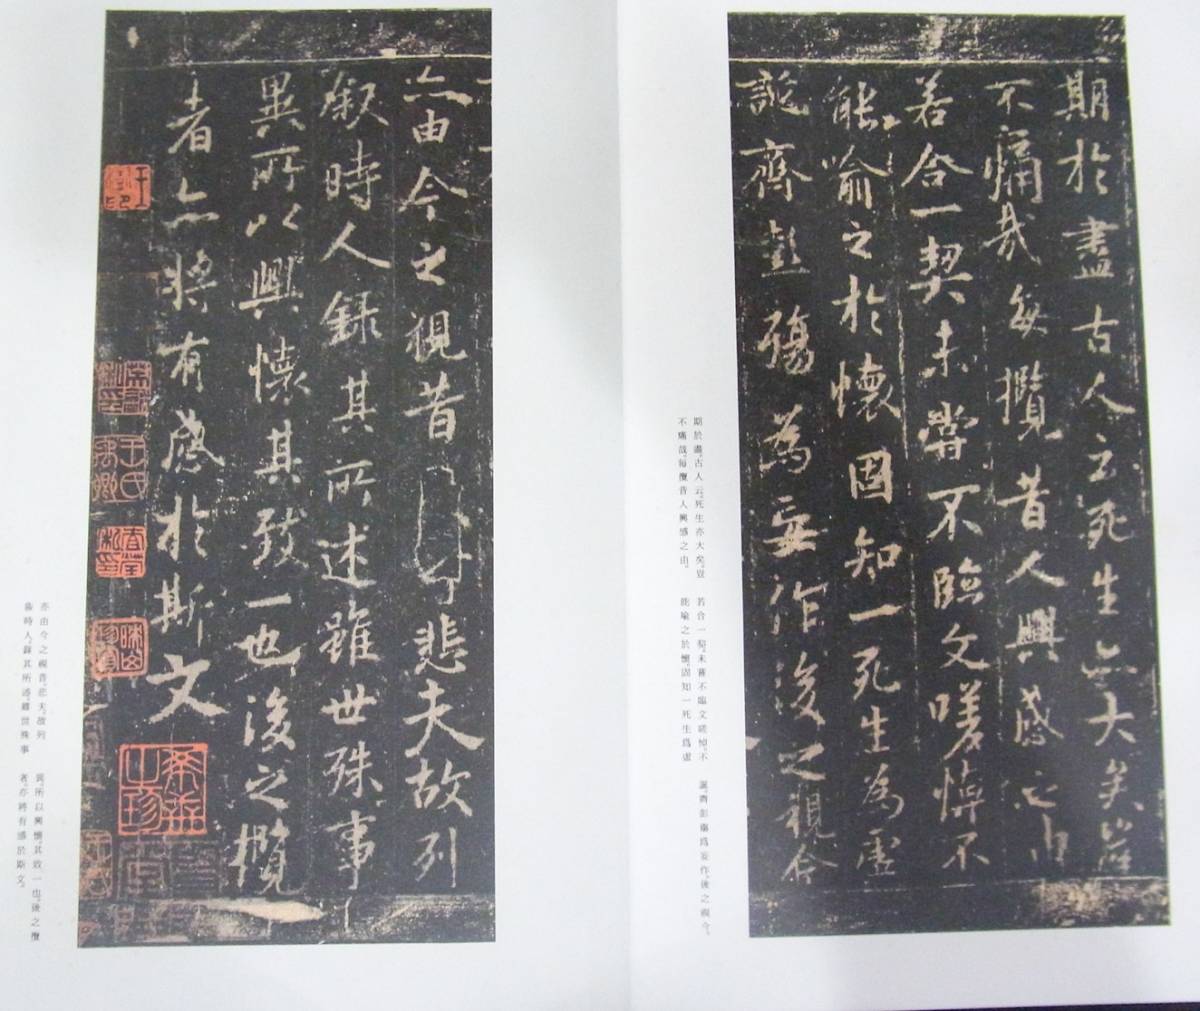 期於盡古人云死生亦大矣豈
不痛哉每攬昔人興感之由
若合一契未嘗不臨文嗟悼不
能喻之於懷固知一死生為虛
誕齊彭殤為妄作後之視今
期於盡。古人云。死生亦大矣。豈
不痛哉。每攬昔人興感之由。
若合一契。未嘗不臨文嗟悼。不
能喻之於懷。固知一死生爲虛
誕。齊彭殤爲妄作。後之視今。
亦由今之視昔悲夫故列
叙時人錄其所述雖世殊事
異所以興懷其致一也後之攬
者亦將有感於斯文
亦由今之視昔。悲夫。故列
叙時人。錄其所述。雖世殊事
異。所以興懷。其致一也。後之攬
者。亦將有感於斯文。